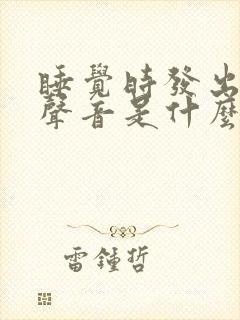 睡覺時發出
聲音是什麼
雷鍾哲